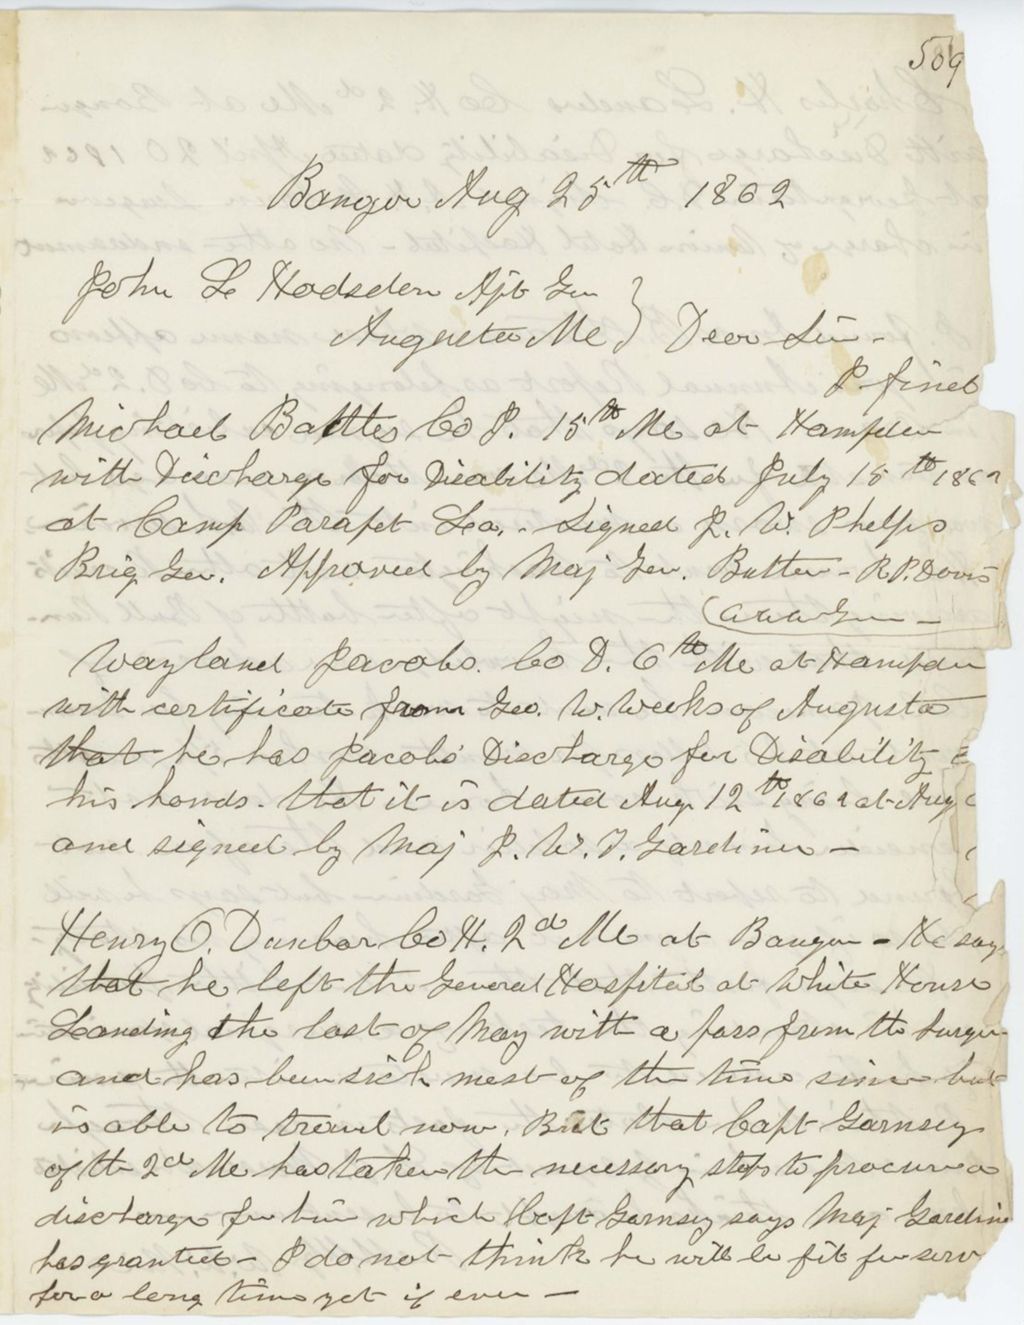 509
Bangor Aug 25th 1862
John L Hodsdon Ajt Gen
Augusta Me } Dear Sir -
I find
Michael Battles Co I. 15th Me at Hampden
with Discharge for Disability dated July 15th 1862
at Camp Parapet La. - Signed J. W. Phelps
Brig Gen. Approved by Maj Gen. Butler - R.P. Davis
a a a Gen -
Wayland Jacobs. Co D. 6th Me at Hampden
with certificate from Geo. W. Weeks of Augusta
that he has Jacobs' Discharge for Disability
his hands. that it is dated Aug. 12th 1862 at Aug
and signed by Maj J. W. T. Gardiner -
Henry O. Dunbar Co H. 2d Me at Bangor - He says
that he left the General Hospital at White House
Landing the last of May with a pass from the Surgeon
and has been sick most of the time since but
is able to travel now. But that Capt Garnsey
of the 2d Me has taken the necessary steps to procure a
discharge for him which Capt Garnsey says Maj Gardiner
has granted - I do not think he will be fit for serv
for a long time yet if ever -